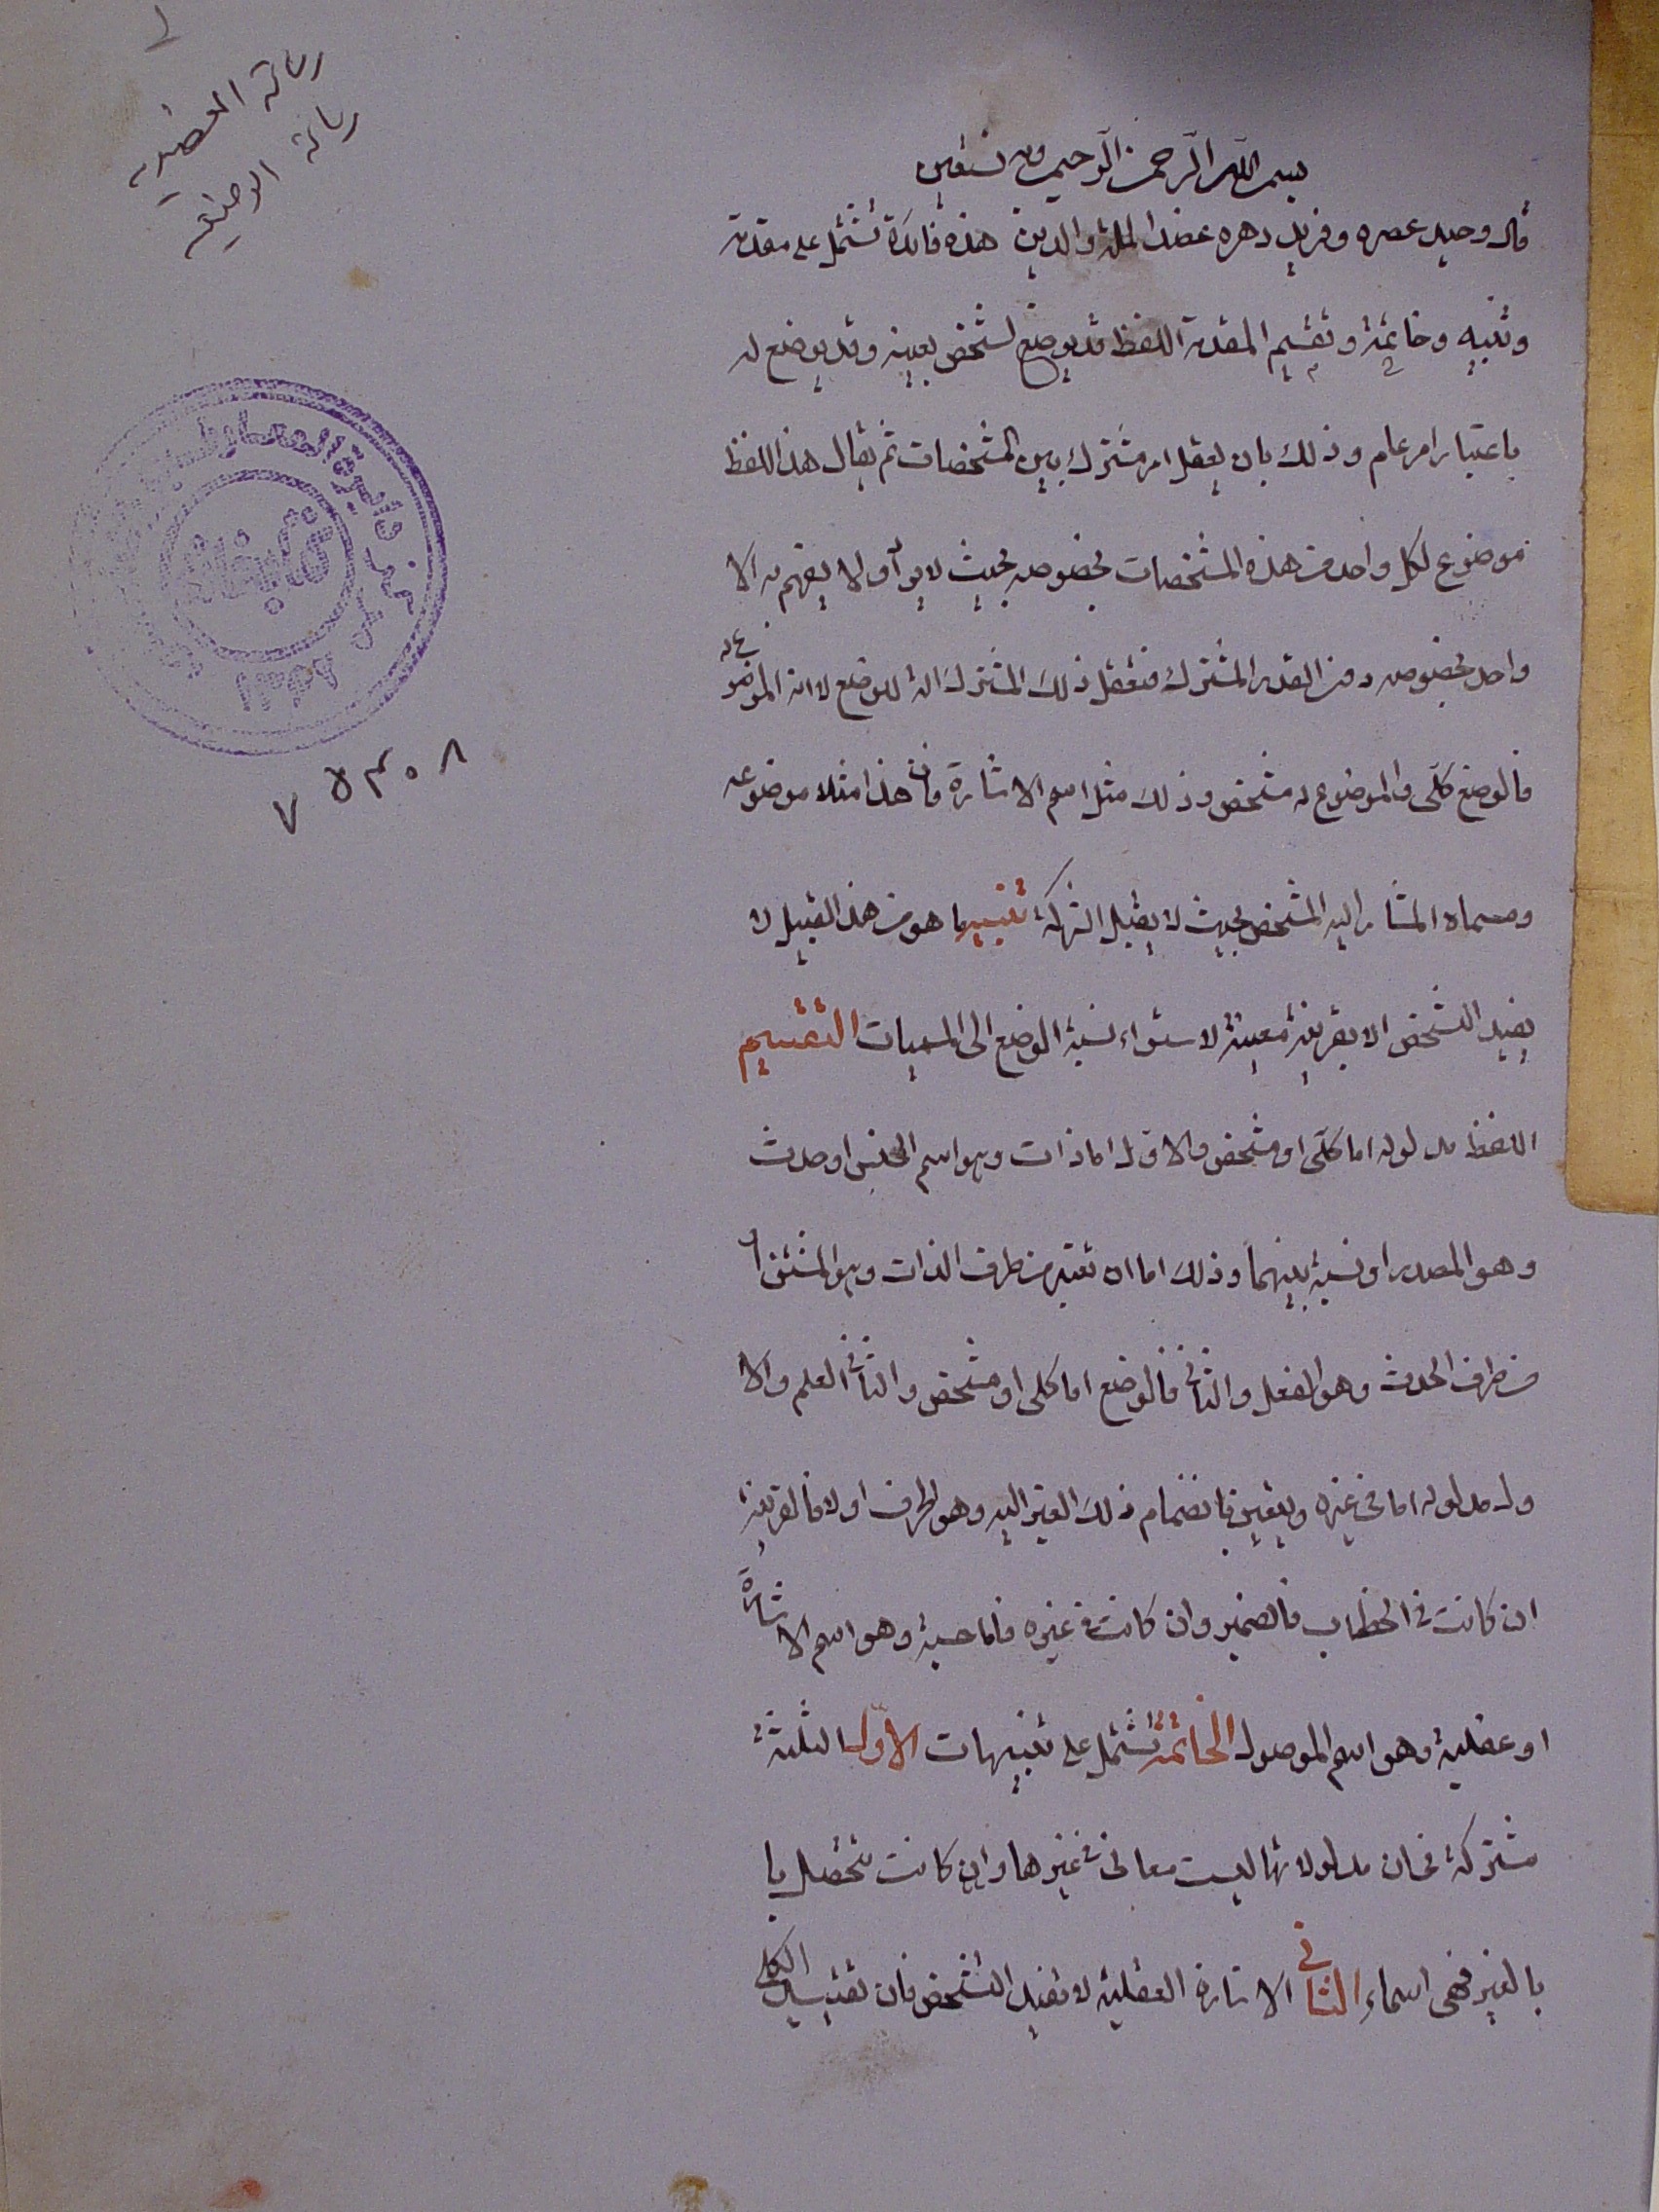 رسالة العضدية
رسالة الوضعية
بسم الله الرحمن الرحيم وبه نستعين
قال وحيد عصره وفريد دهره عضد الملة والدين هذه فائدة تشتمل على مقدمة
وتنبيه وخاتمة وتقسيم المقدمة اللفظ قد يوضع لشخص بعينه وقد يوضع له
باعتبار امر عام وذلك بان يعقل امر مشترك بين المشخصات ثم يقال هذا اللفظ
موضوع لكل واحد من هذه المشخصات بخصوصه بحيث لا يراد ولا يفهم به الا
واحد بخصوصه دون القدر المشترك فتعقل ذلك المشترك الة للوضع لا انه الموضوع له
فالوضع كلى والموضوع له مشخص وذلك مثل اسم الاشارة فان هذا مثلا موضوعه
ومسماه المشار اليه المشخص بحيث لا يقبل الشركة تنبيه ما هو من هذا القبيل لا
يفيد التشخص الا بقرينة معينة لاستواء نسبة الوضع الى المسميات التقسيم
اللفظ مدلوله اما كلى او مشخص والاول اما ذات وهو اسم الجنس او حدث
وهو المصدر او نسبة بينهما وذلك اما ان تعتبر من طرف الذات وهو المشتق او
من طرف الحدث وهو الفعل والثانى فالوضع اما كلى او مشخص والثانى العلم والا
ول مدلوله اما فى غيره ويتعين بانضمام ذلك الغير اليه وهو الحرف او لا فالقرينة
ان كانت فى الخطاب فالضمير وان كانت فى غيره فاما حسية وهو اسم الاشارة
او عقلية وهو اسم الموصول الخاتمة تشتمل على تنبيهات الاول الثلثة
مشتركة فى ان مدلولاتها ليست معانى فى غيرها وان كانت تتحصل با
بالغير فهى اسماء الثانى الاشارة العقلية لا تفيد التشخص فان تقييد الكلى
دايرة المعارف
كتبخانه
١٣٢٢
٧٥٣٠٨